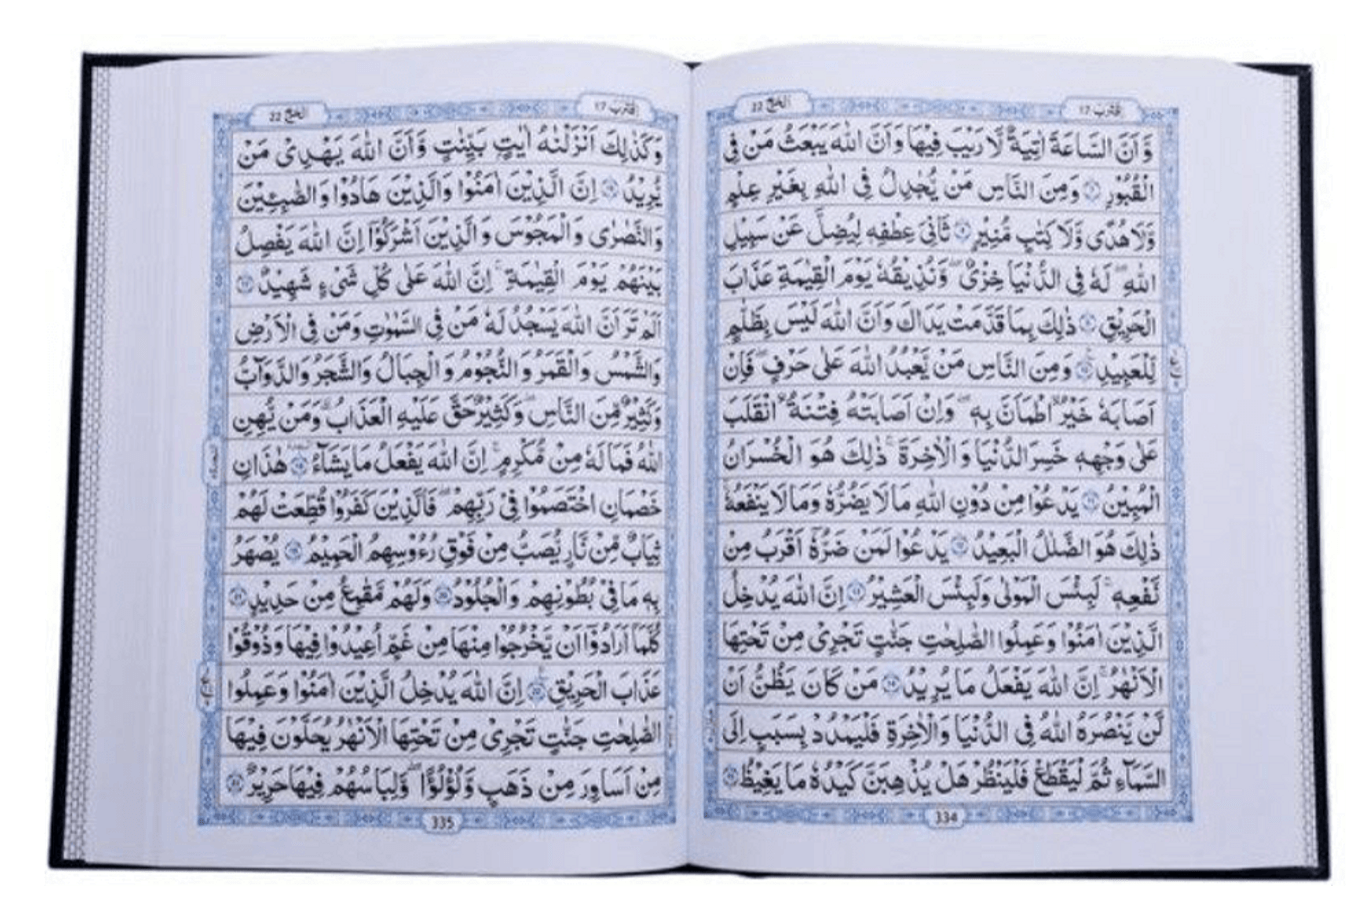 اقترب 17 الحج 22
وَّ اَنَّ السَّاعَةَ اٰتِيَةٌ لَّا رَيْبَ فِيْهَا وَ اَنَّ اللّٰهَ يَبْعَثُ مَنْ فِى
الْقُبُوْرِ ۝۷ وَ مِنَ النَّاسِ مَنْ يُّجَادِلُ فِى اللّٰهِ بِغَيْرِ عِلْمٍ
وَّ لَا هُدًى وَّ لَا كِتٰبٍ مُّنِيْرٍ ۝۸ ثَانِىَ عِطْفِهٖ لِيُضِلَّ عَنْ سَبِيْلِ
اللّٰهِ ؕ لَهٗ فِى الدُّنْيَا خِزْىٌ وَّ نُذِيْقُهٗ يَوْمَ الْقِيٰمَةِ عَذَابَ
الْحَرِيْقِ ۝۹ ذٰلِكَ بِمَا قَدَّمَتْ يَدٰكَ وَ اَنَّ اللّٰهَ لَيْسَ بِظَلَّامٍ
لِّلْعَبِيْدِ ۝۱۰ وَ مِنَ النَّاسِ مَنْ يَّعْبُدُ اللّٰهَ عَلٰى حَرْفٍ ۚ فَاِنْ
اَصَابَهٗ خَيْرُ اۨطْمَاَنَّ بِهٖ ۚ وَ اِنْ اَصَابَتْهُ فِتْنَةُ اۨنْقَلَبَ
عَلٰى وَجْهِهٖ خَسِرَ الدُّنْيَا وَ الْاٰخِرَةَ ؕ ذٰلِكَ هُوَ الْخُسْرَانُ
الْمُبِيْنُ ۝۱۱ يَدْعُوْا مِنْ دُوْنِ اللّٰهِ مَا لَا يَضُرُّهٗ وَ مَا لَا يَنْفَعُهٗ
ذٰلِكَ هُوَ الضَّلٰلُ الْبَعِيْدُ ۝۱۲ يَدْعُوْا لَمَنْ ضَرُّهٗۤ اَقْرَبُ مِنْ
نَّفْعِهٖ ؕ لَبِئْسَ الْمَوْلٰى وَ لَبِئْسَ الْعَشِيْرُ ۝۱۳ اِنَّ اللّٰهَ يُدْخِلُ
الَّذِيْنَ اٰمَنُوْا وَ عَمِلُوا الصّٰلِحٰتِ جَنّٰتٍ تَجْرِىْ مِنْ تَحْتِهَا
الْاَنْهٰرُ ؕ اِنَّ اللّٰهَ يَفْعَلُ مَا يُرِيْدُ ۝۱۴ مَنْ كَانَ يَظُنُّ اَنْ
لَّنْ يَّنْصُرَهُ اللّٰهُ فِى الدُّنْيَا وَ الْاٰخِرَةِ فَلْيَمْدُدْ بِسَبَبٍ اِلَى
السَّمَآءِ ثُمَّ لْيَقْطَعْ فَلْيَنْظُرْ هَلْ يُذْهِبَنَّ كَيْدُهٗ مَا يَغِيْظُ ۝۱۵
334
اقترب 17 الحج 22
وَ كَذٰلِكَ اَنْزَلْنٰهُ اٰيٰتٍۭ بَيِّنٰتٍ وَّ اَنَّ اللّٰهَ يَهْدِىْ مَنْ
يُّرِيْدُ ۝۱۶ اِنَّ الَّذِيْنَ اٰمَنُوْا وَ الَّذِيْنَ هَادُوْا وَ الصّٰبِـِٕيْنَ
وَ النَّصٰرٰى وَ الْمَجُوْسَ وَ الَّذِيْنَ اَشْرَكُوْۤا اِنَّ اللّٰهَ يَفْصِلُ
بَيْنَهُمْ يَوْمَ الْقِيٰمَةِ ؕ اِنَّ اللّٰهَ عَلٰى كُلِّ شَىْءٍ شَهِيْدٌ ۝۱۷
اَلَمْ تَرَ اَنَّ اللّٰهَ يَسْجُدُ لَهٗ مَنْ فِى السَّمٰوٰتِ وَ مَنْ فِى الْاَرْضِ
وَ الشَّمْسُ وَ الْقَمَرُ وَ النُّجُوْمُ وَ الْجِبَالُ وَ الشَّجَرُ وَ الدَّوَآبُّ
وَ كَثِيْرٌ مِّنَ النَّاسِ ؕ وَ كَثِيْرٌ حَقَّ عَلَيْهِ الْعَذَابُ ؕ وَ مَنْ يُّهِنِ
اللّٰهُ فَمَا لَهٗ مِنْ مُّكْرِمٍ ؕ اِنَّ اللّٰهَ يَفْعَلُ مَا يَشَآءُ ۝۱۸ هٰذٰنِ
خَصْمٰنِ اخْتَصَمُوْا فِىْ رَبِّهِمْ فَالَّذِيْنَ كَفَرُوْا قُطِّعَتْ لَهُمْ
ثِيَابٌ مِّنْ نَّارٍ يُصَبُّ مِنْ فَوْقِ رُءُوْسِهِمُ الْحَمِيْمُ ۝۱۹ يُصْهَرُ
بِهٖ مَا فِىْ بُطُوْنِهِمْ وَ الْجُلُوْدُ ۝۲۰ وَ لَهُمْ مَّقَامِعُ مِنْ حَدِيْدٍ ۝۲۱
كُلَّمَاۤ اَرَادُوْۤا اَنْ يَّخْرُجُوْا مِنْهَا مِنْ غَمٍّ اُعِيْدُوْا فِيْهَا وَ ذُوْقُوْا
عَذَابَ الْحَرِيْقِ ۝۲۲ اِنَّ اللّٰهَ يُدْخِلُ الَّذِيْنَ اٰمَنُوْا وَ عَمِلُوا
الصّٰلِحٰتِ جَنّٰتٍ تَجْرِىْ مِنْ تَحْتِهَا الْاَنْهٰرُ يُحَلَّوْنَ فِيْهَا
مِنْ اَسَاوِرَ مِنْ ذَهَبٍ وَّ لُؤْلُؤًا ؕ وَ لِبَاسُهُمْ فِيْهَا حَرِيْرٌ ۝۲۳
335